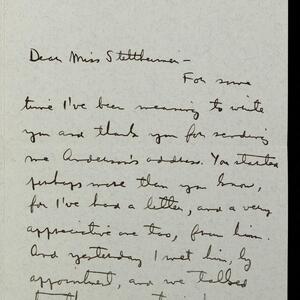 Dear Miss Stettheimer —
For some
time I've been meaning to write
you and thank you for sending
me Anderson's address. You started
perhaps more than you know,
for I've had a letter, and a very
appreciative one too, from him.
And yesterday I met him, by
appointment, and we talked